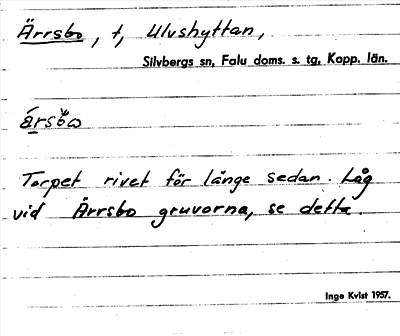 Ärrsbo, t, Ulvshyttan,
Silvbergs sn, Falu doms. s. tg, Kopp. län.
Torpet rivet för länge sedan. Låg
vid Ärrsbo gruvorna, se detta.
Inge Kvist 1957.